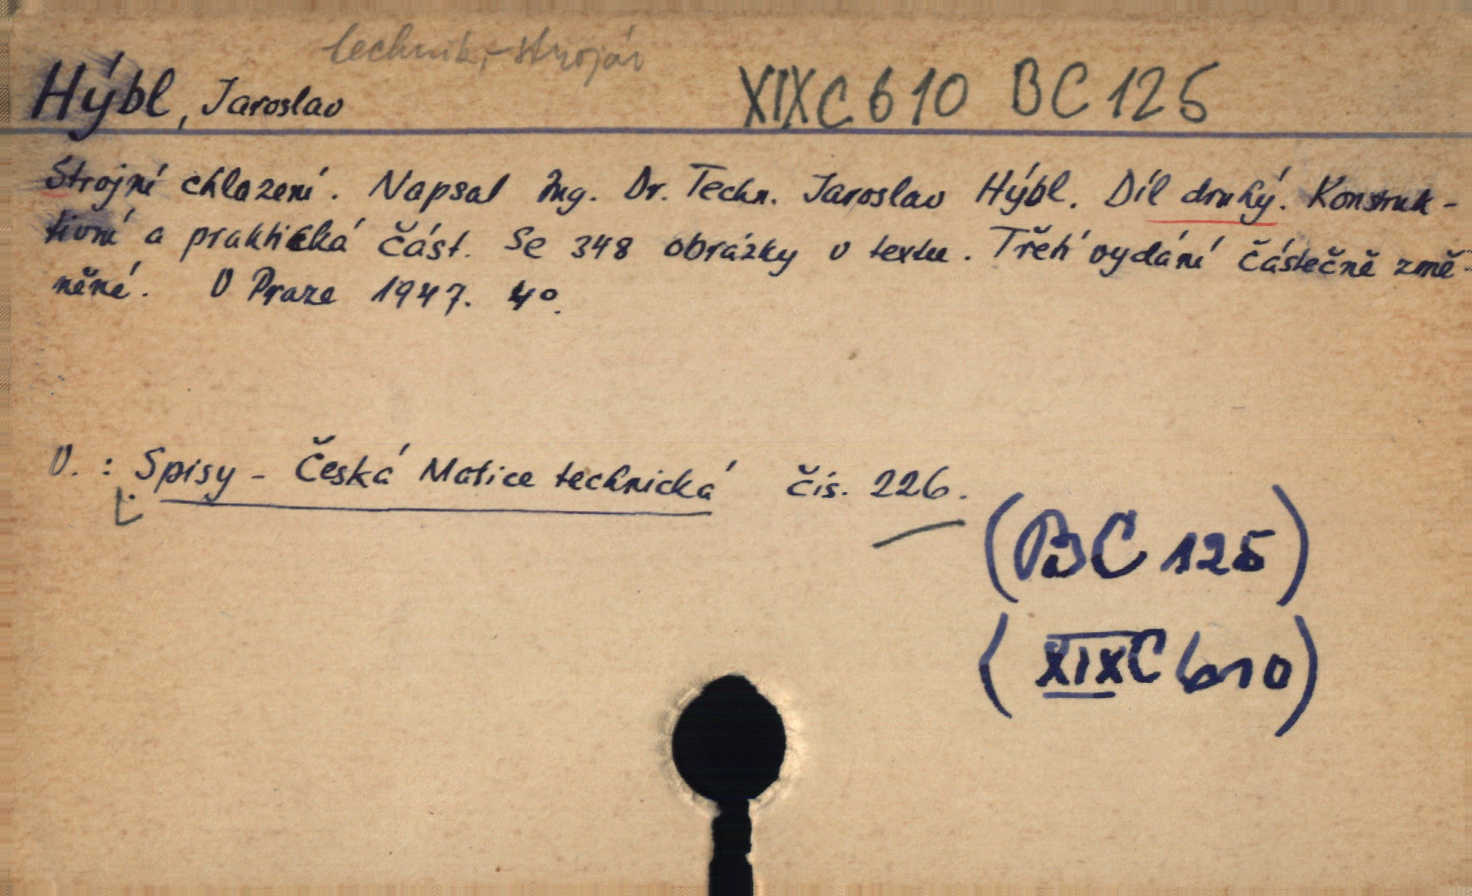 technik, - strojár
Hýbl, Jaroslav XIX C 610 BC 125
Strojní chlazení. Napsal Ing. Dr. Techn. Jaroslav Hýbl. Díl druhý. Konstruk-
tivní a praktická část. Se 348 obrázky v textu. Třetí vydání částečně změ-
něné. V Praze 1947. 4°.
V. : Spisy - Česká Matice technická čís. 226.
(BC 125)
(XIX C 610)